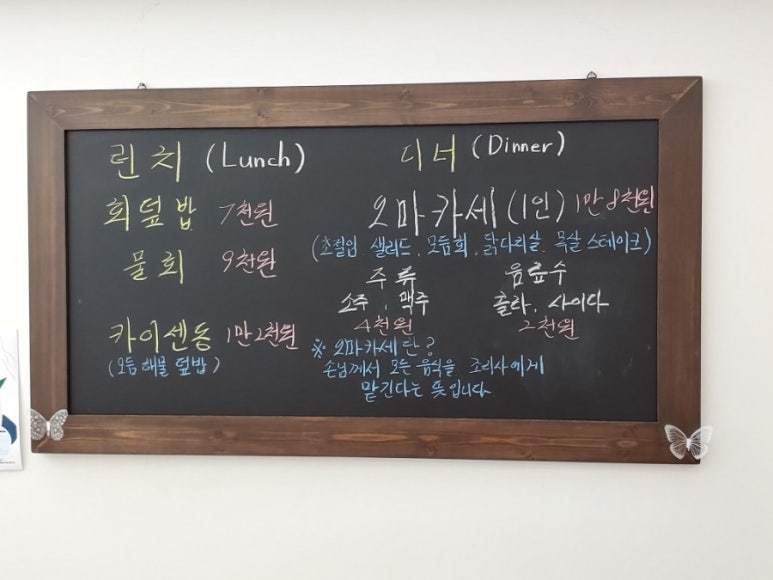 런치 (Lunch)
회덮밥 7천원
물회 9천원
카이센동 1만2천원
(모둠 해물 덮밥)
디너 (Dinner)
오마카세 (1인) 1만8천원
(초절임, 샐러드, 모듬회, 닭다리살, 목살 스테이크)
주류
소주, 맥주
4천원
음료수
콜라, 사이다
2천원
※ 오마카세란?
손님께서 모든 음식을 조리사에게
맡긴다는 뜻입니다.